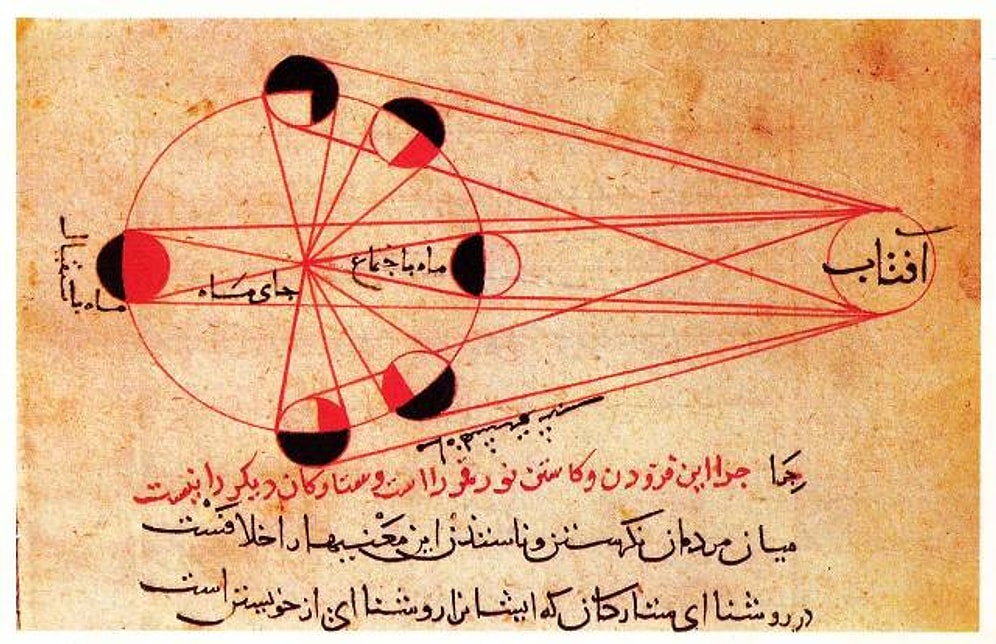 افتاب
ماه باجتماع
جای ماه
ماه باستقبال
جرا این فزودن وکاستن نور قمر را است وستارکان دیکر را نیست
میان مردمان این معنیها را خلافست
در روشناای ستارکان که ایشانرا روشناای از خویشتن است